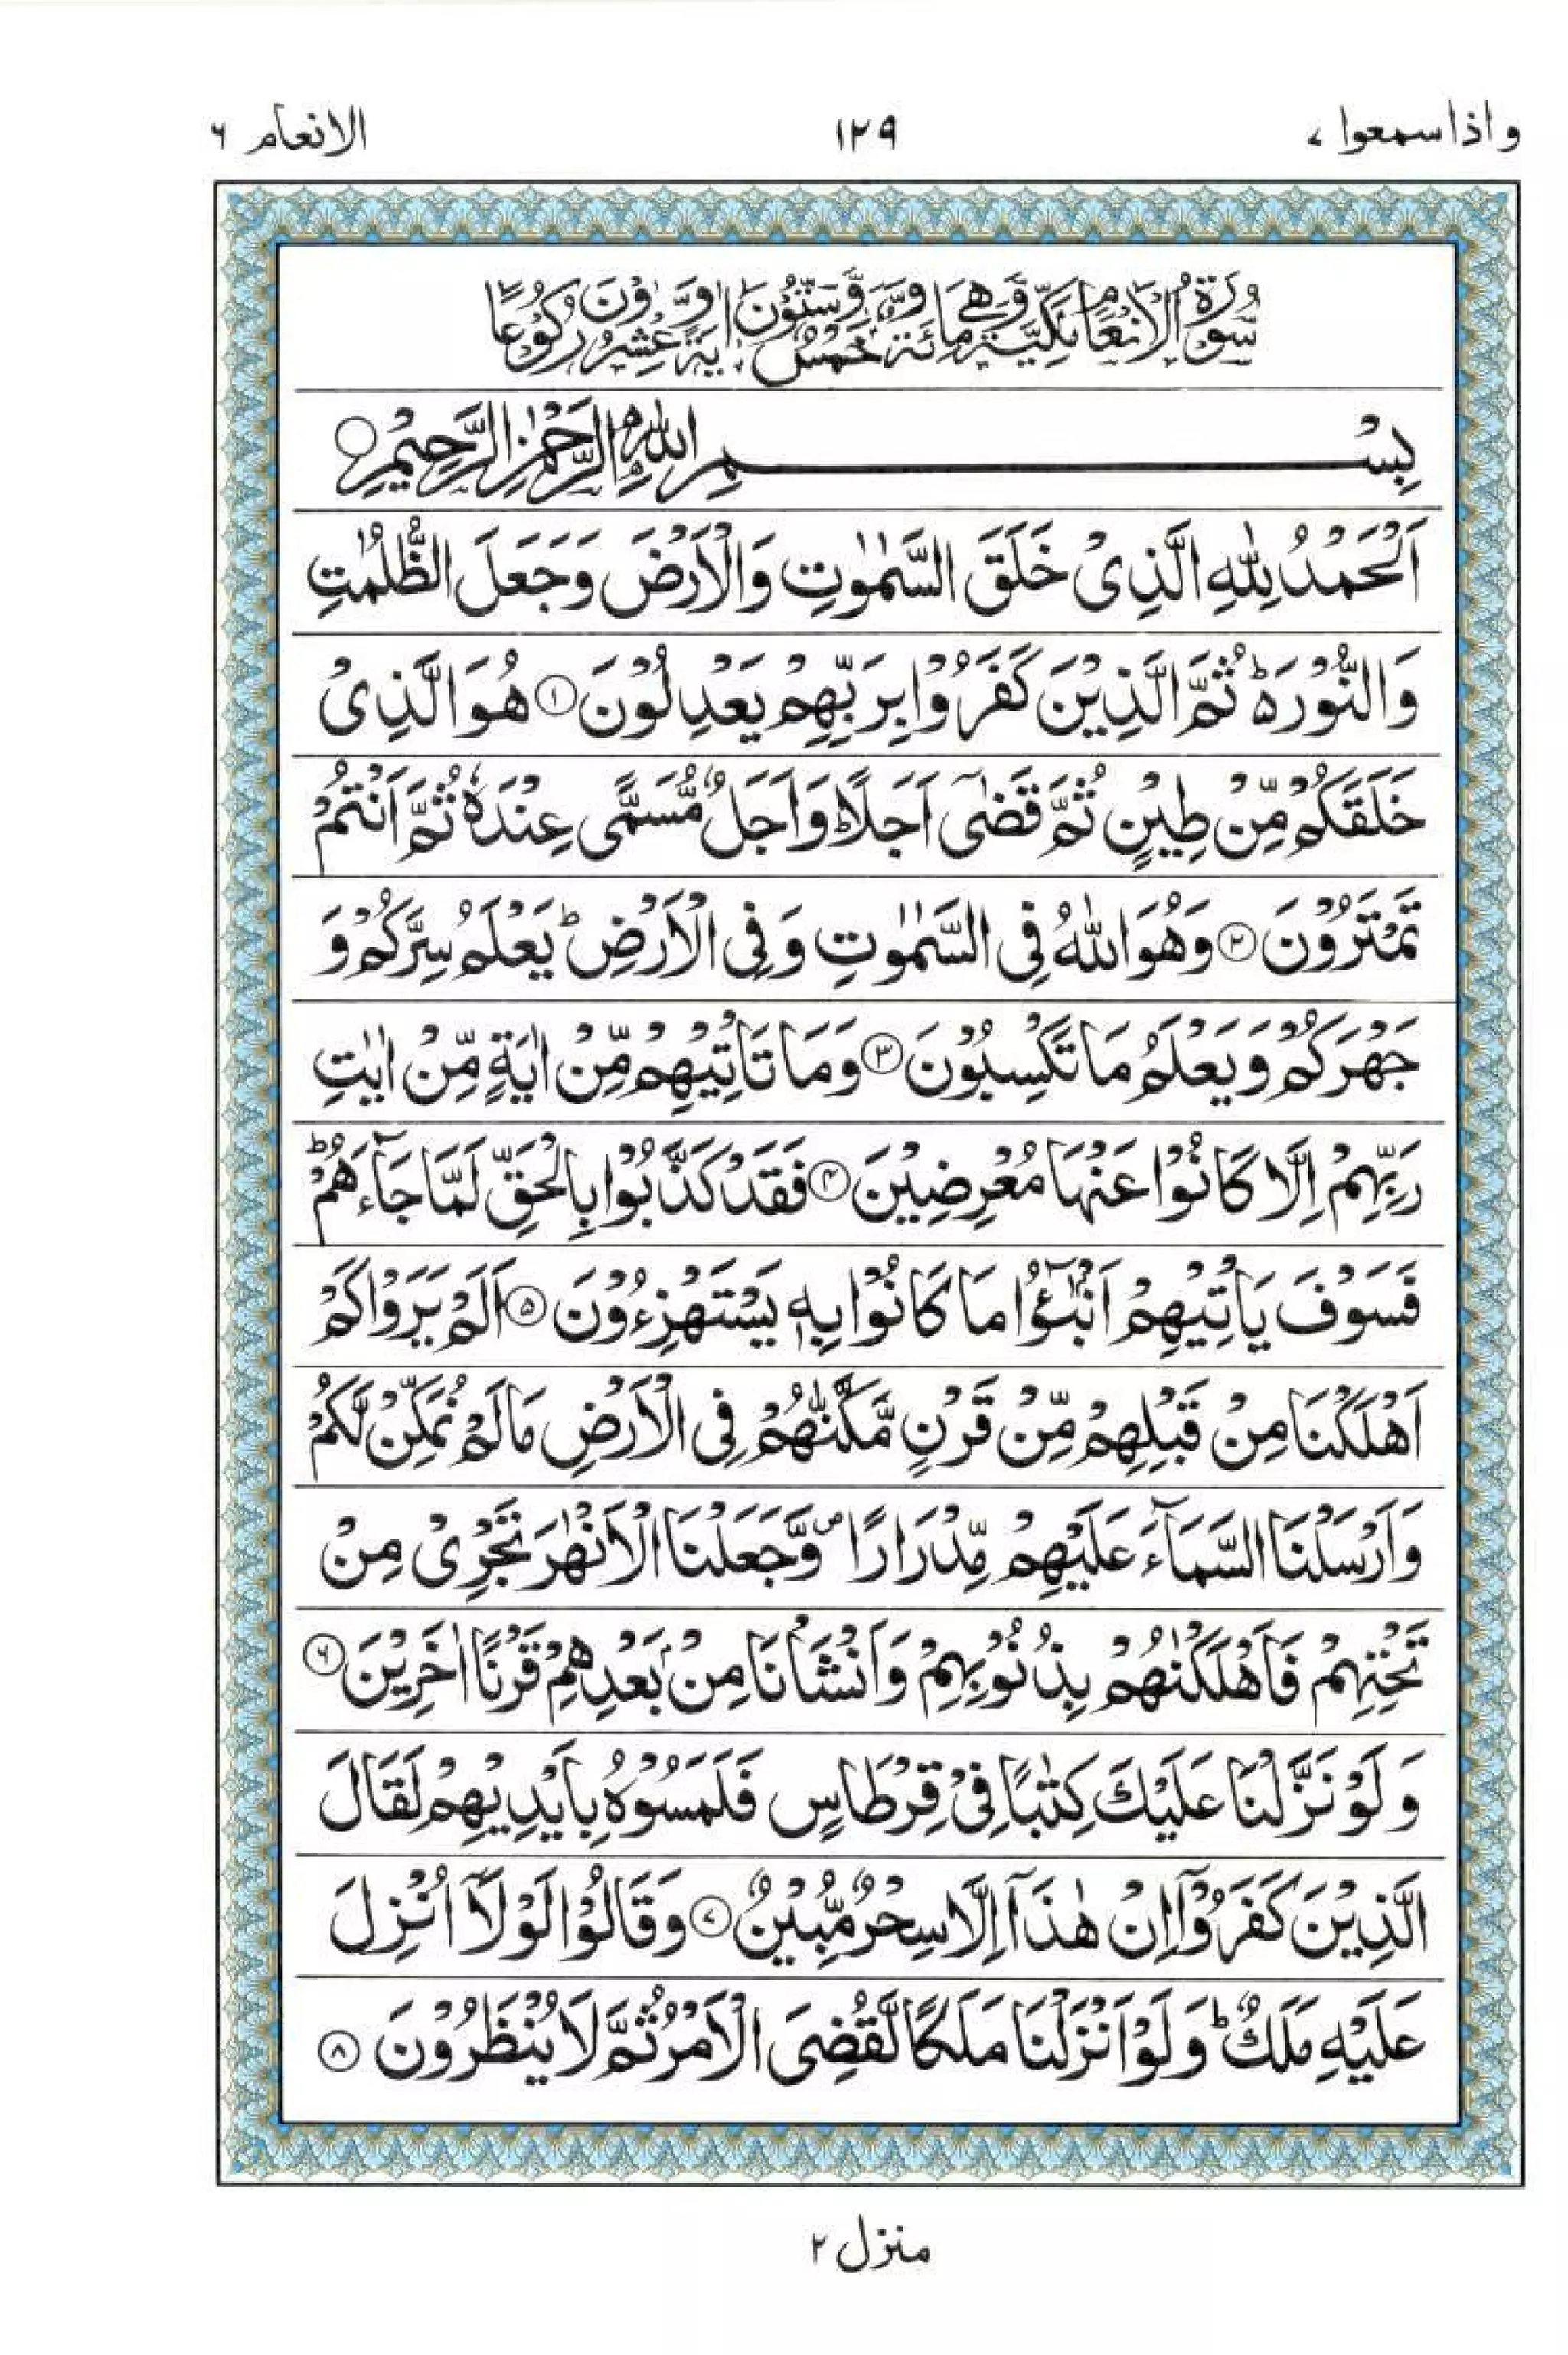 واذاسمعوا ٧
١٢٩
الانعام ٦
سُوْرَةُ الْاَنْعَامِ مَكِّيَّةٌ وَّهِيَ مِائَةٌ وَّخَمْسٌ وَّسِتُّوْنَ اٰيَةً وَّعِشْرُوْنَ رُكُوْعًا
بِسْمِ اللّٰهِ الرَّحْمٰنِ الرَّحِيْمِ
اَلْحَمْدُ لِلّٰهِ الَّذِیْ خَلَقَ السَّمٰوٰتِ وَالْاَرْضَ وَجَعَلَ الظُّلُمٰتِ
وَالنُّوْرَ ؕ۬ ثُمَّ الَّذِیْنَ كَفَرُوْا بِرَبِّهِمْ یَعْدِلُوْنَ ۝١ هُوَ الَّذِیْ
خَلَقَكُمْ مِّنْ طِیْنٍ ثُمَّ قَضٰۤی اَجَلًا ؕ وَاَجَلٌ مُّسَمًّی عِنْدَهٗ ثُمَّ اَنْتُمْ
تَمْتَرُوْنَ ۝٢ وَهُوَ اللّٰهُ فِی السَّمٰوٰتِ وَفِی الْاَرْضِ ؕ یَعْلَمُ سِرَّكُمْ وَ
جَهْرَكُمْ وَیَعْلَمُ مَا تَكْسِبُوْنَ ۝٣ وَمَا تَاْتِیْهِمْ مِّنْ اٰیَةٍ مِّنْ اٰیٰتِ
رَبِّهِمْ اِلَّا كَانُوْا عَنْهَا مُعْرِضِیْنَ ۝٤ فَقَدْ كَذَّبُوْا بِالْحَقِّ لَمَّا جَآءَهُمْ ؕ
فَسَوْفَ یَاْتِیْهِمْ اَنْۢبٰٓؤُا مَا كَانُوْا بِهٖ یَسْتَهْزِءُوْنَ ۝٥ اَلَمْ یَرَوْا كَمْ
اَهْلَكْنَا مِنْ قَبْلِهِمْ مِّنْ قَرْنٍ مَّكَّنّٰهُمْ فِی الْاَرْضِ مَا لَمْ نُمَكِّنْ لَّكُمْ
وَاَرْسَلْنَا السَّمَآءَ عَلَیْهِمْ مِّدْرَارًا ۪ وَّجَعَلْنَا الْاَنْهٰرَ تَجْرِیْ مِنْ
تَحْتِهِمْ فَاَهْلَكْنٰهُمْ بِذُنُوْبِهِمْ وَاَنْشَاْنَا مِنْۢ بَعْدِهِمْ قَرْنًا اٰخَرِیْنَ ۝٦
وَلَوْ نَزَّلْنَا عَلَیْكَ كِتٰبًا فِیْ قِرْطَاسٍ فَلَمَسُوْهُ بِاَیْدِیْهِمْ لَقَالَ
الَّذِیْنَ كَفَرُوْۤا اِنْ هٰذَاۤ اِلَّا سِحْرٌ مُّبِیْنٌ ۝٧ وَقَالُوْا لَوْلَاۤ اُنْزِلَ
عَلَیْهِ مَلَكٌ ؕ وَلَوْ اَنْزَلْنَا مَلَكًا لَّقُضِیَ الْاَمْرُ ثُمَّ لَا یُنْظَرُوْنَ ۝٨
منزل ٢